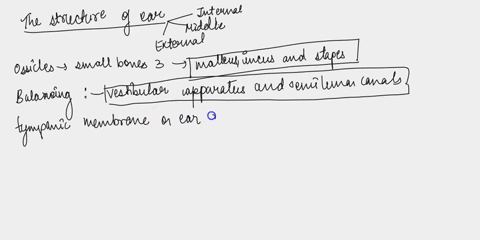 The structure of ear
Internal
Middle
External
Ossicles → small bones 3 → malleus, incus and stapes
Balancing :- vestibular apparatus and semilunar canals
tympanic membrane or ear